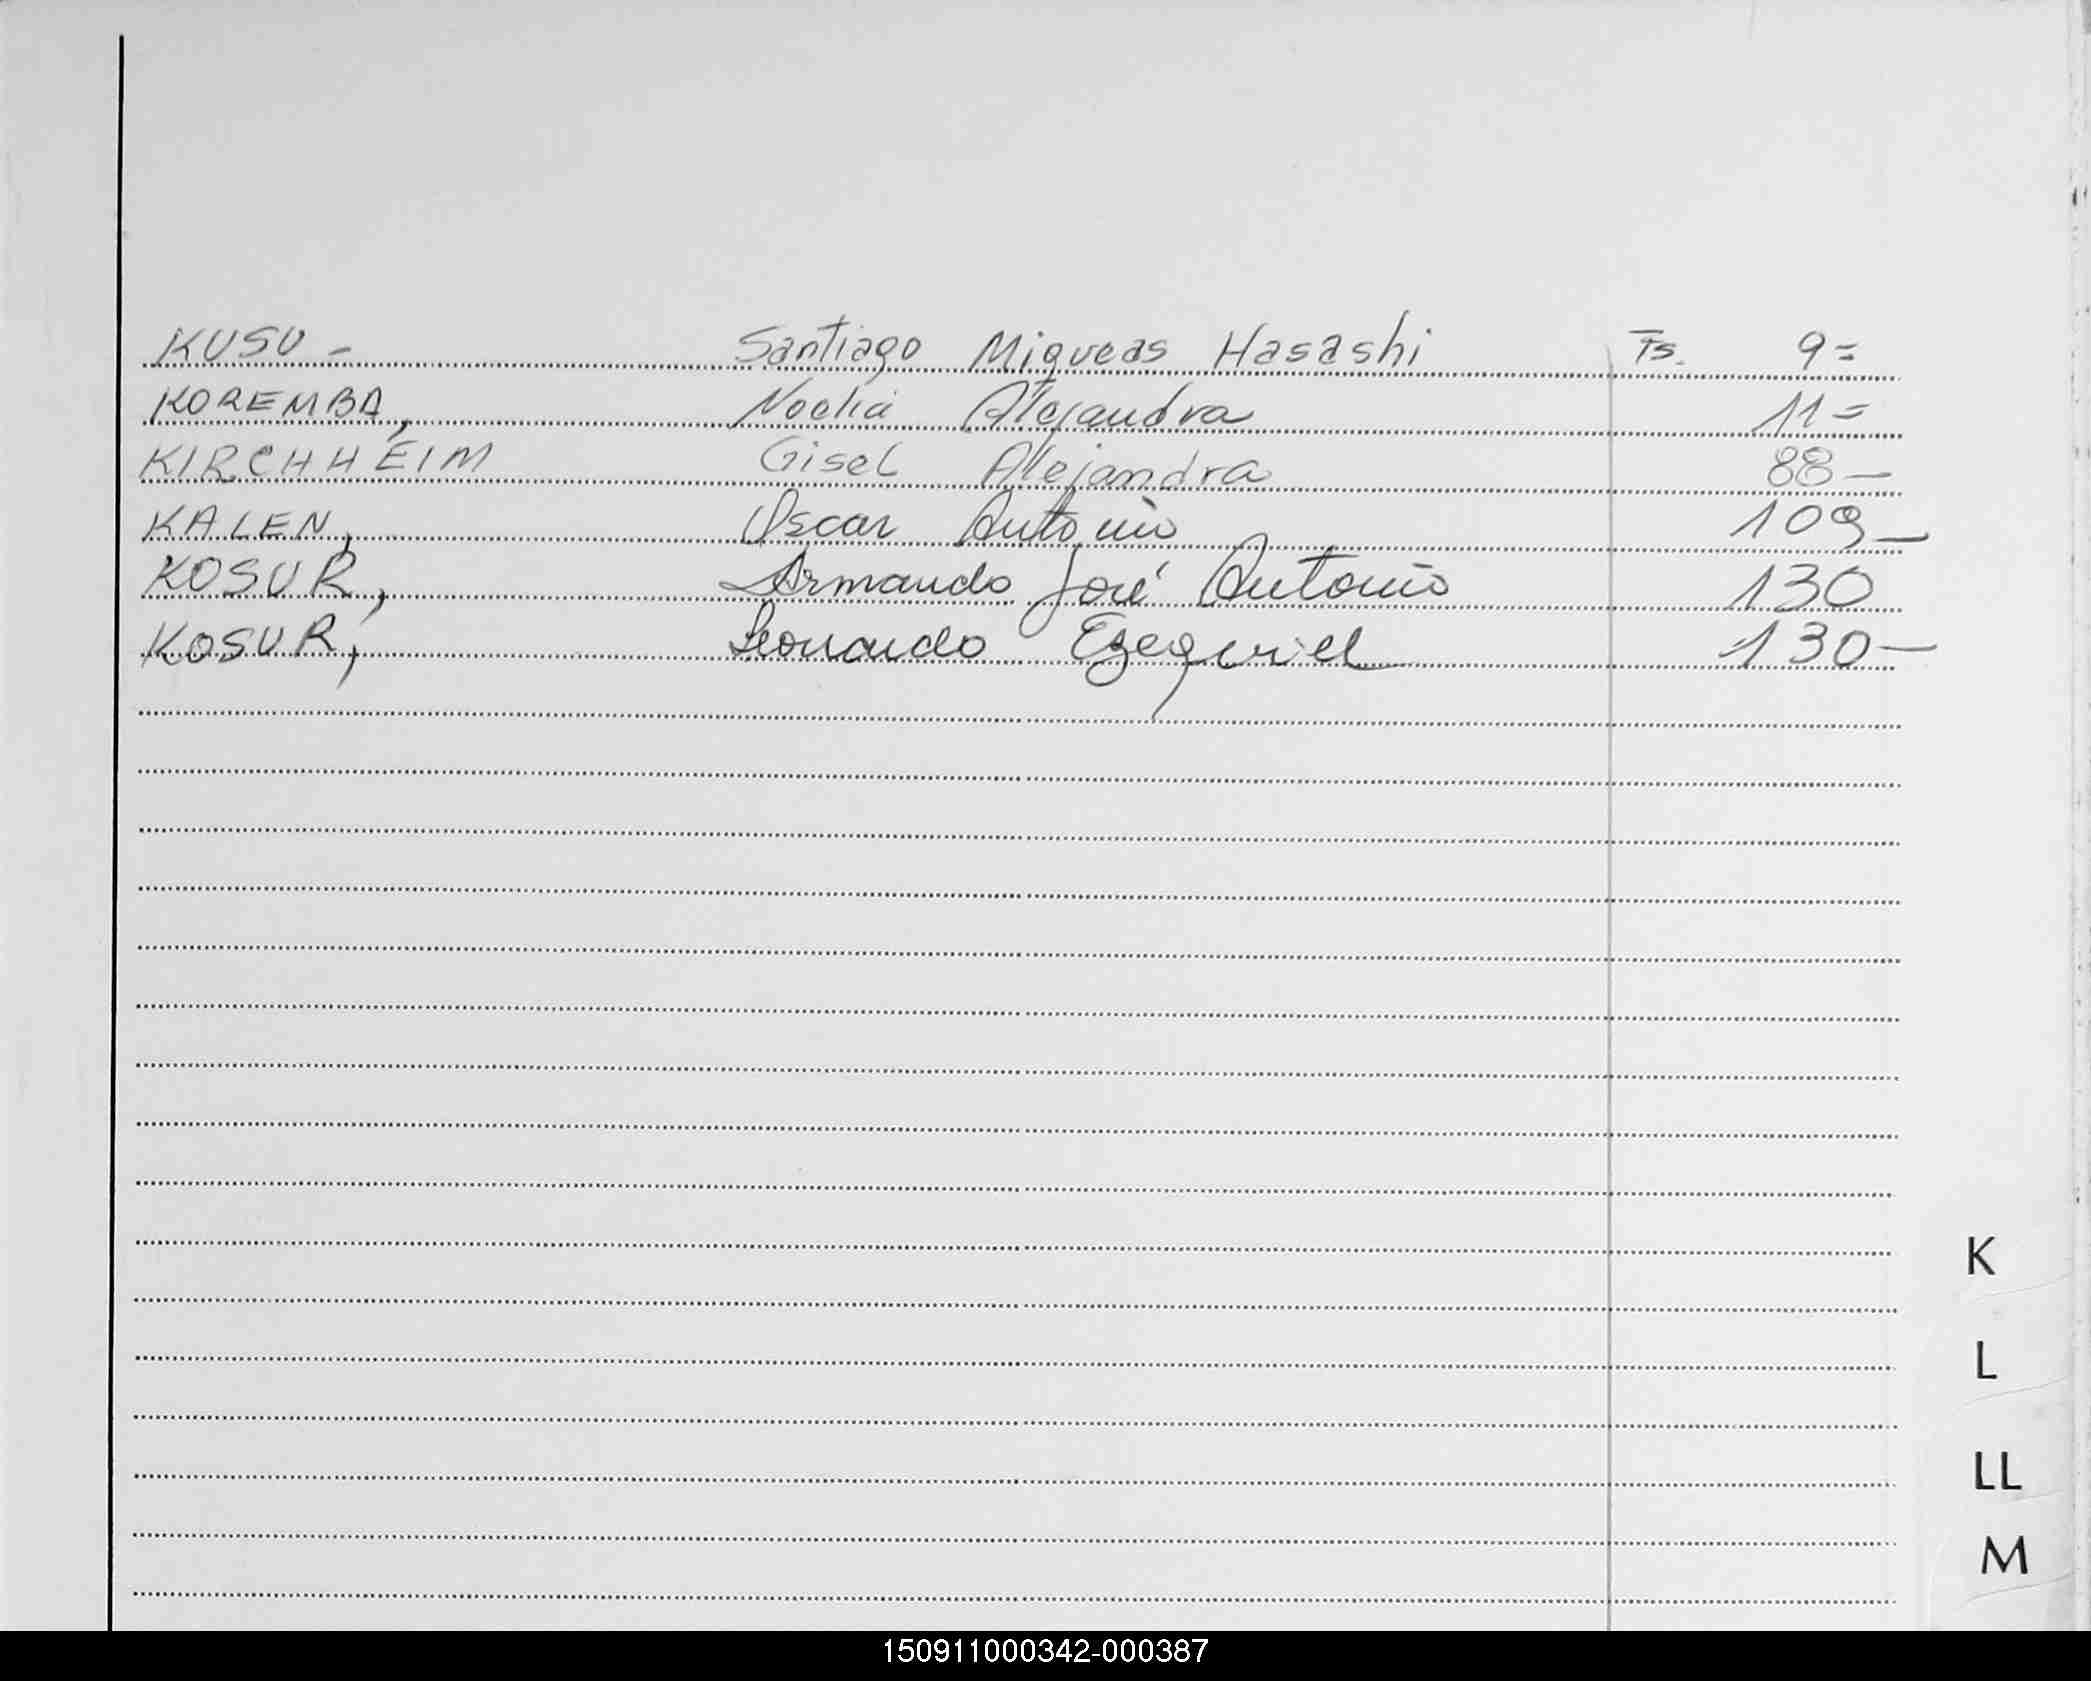 KUSU - Santiago Miqueas Hasashi Fs. 9=
KOREMBA, Noelia Alejandra 11=
KIRCHHEIM Gisel Alejandra 88-
KALEN, Oscar Antonio 109-
KOSUR, Armando José Antonio 130
KOSUR, Leonardo Ezequiel 130-
K
L
LL
M
150911000342-000387